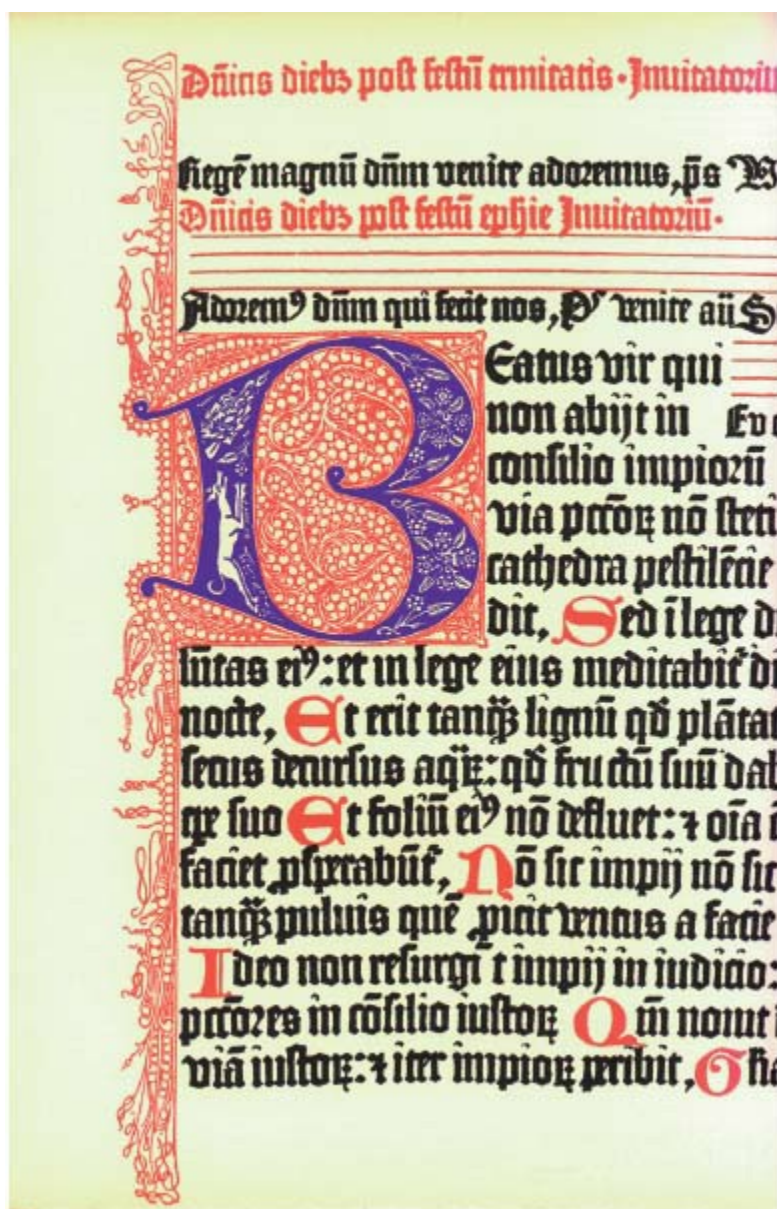 Dñicis diebꝫ post festū trinitatis · Inuitatoriu
Regē magnū dñm venite adoremus, p̄s
Dñicis diebꝫ post festū ephie Inuitatoriū·
Adoremꝰ dñm qui fecit nos, venite aū S
Beatus vir qui
non abijt in
consilio impioꝛū
via pccōꝝ nō steti
cathedra pestilēcie
dit, Sed ī lege d
lūtas eiꝰ: et in lege eius meditabit̄ di
nocte, Et erit tanq̄ꝫ lignū qd̄ plātatu
secus decursus aq̄ꝝ: qd̄ fructū suū dab
tꝑe suo Et foliū eiꝰ nō defluet: ⁊ oīa
faciet ꝓsperabūt̄, Nō sic impij nō sic
tanq̄ꝫ puluis quē ꝓicit ventus a facie
Ideo non resurgūt impij in iudicio:
pccōres in cōsilio iustoꝝ Qm̄ nouit
viā iustoꝝ: ⁊ iter impioꝝ peribit,